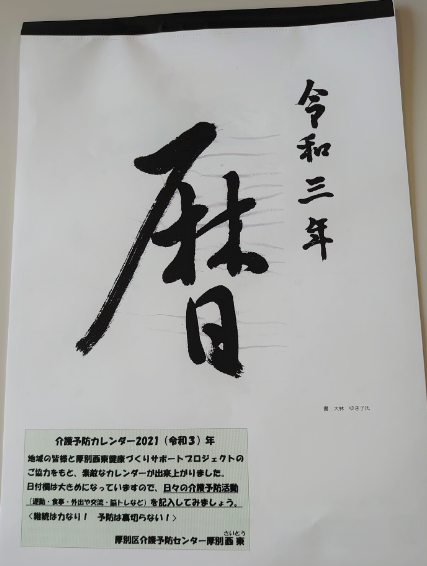 令和三年
暦
介護予防カレンダー2021(令和3)年
地域の皆様と厚別西東健康づくりサポートプロジェクトの
ご協力をもと、素敵なカレンダーが出来上がりました。
日付欄は大きめになっていますので、日々の介護予防活動
(運動・食事・外出や交流・脳トレなど)を記入してみましょう。
<継続は力なり! 予防は裏切らない!>
さいとう
厚別区介護予防センター厚別西東